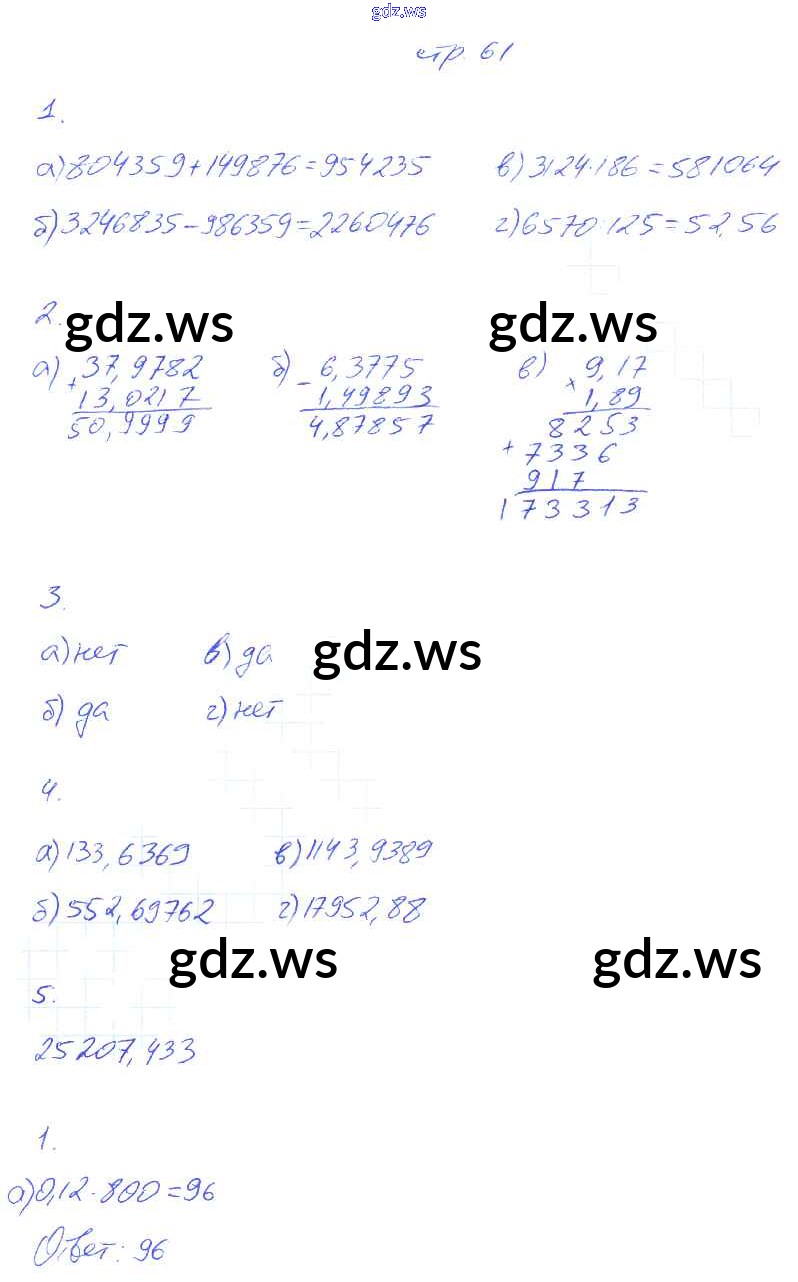 gdz.ws
стр. 61
1.
а) 804359+149876=954235 в) 3124·186=581064
б) 3246835-986359=2260476 г) 6570:125=52,56
2. gdz.ws gdz.ws
а) 37,9782 б) 6,3775 в) 9,17
+ 13,0217 - 1,49893 × 1,89
50,9999 4,87857 8253
+ 7336
917
173313
3.
а) нет в) да gdz.ws
б) да г) нет
4.
а) 133,6369 в) 1143,9389
б) 552,69762 г) 17952,88
gdz.ws gdz.ws
5.
25207,433
1.
а) 0,12·800=96
Ответ: 96